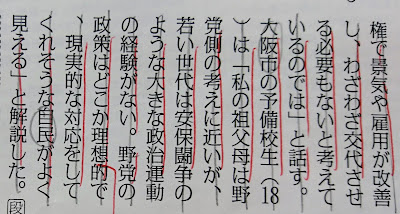 権で景気や雇用が改善
し、わざわざ交代させ
る必要もないと考えて
いるのでは」と話す。
大阪市の予備校生（18
）は「私の祖父母は野
党側の考えに近いが、
若い世代は安保闘争の
ような大きな政治運動
の経験がない。野党の
政策はどこか理想的で
、現実的な対応をして
くれそうな自民がよく
見える」と解説した。